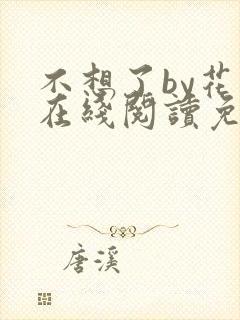 不想了by花
在綫閱讀免
唐溪